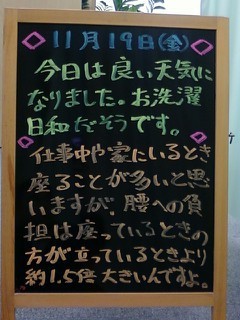 11月19日(金)
今日は良い天気に
なりました。お洗濯
日和だそうです。
仕事中や家にいるとき
座ることが多いと思
いますが、腰への負
担は座っているときの
方が立っているときより
約1.5倍大きいんですよ。